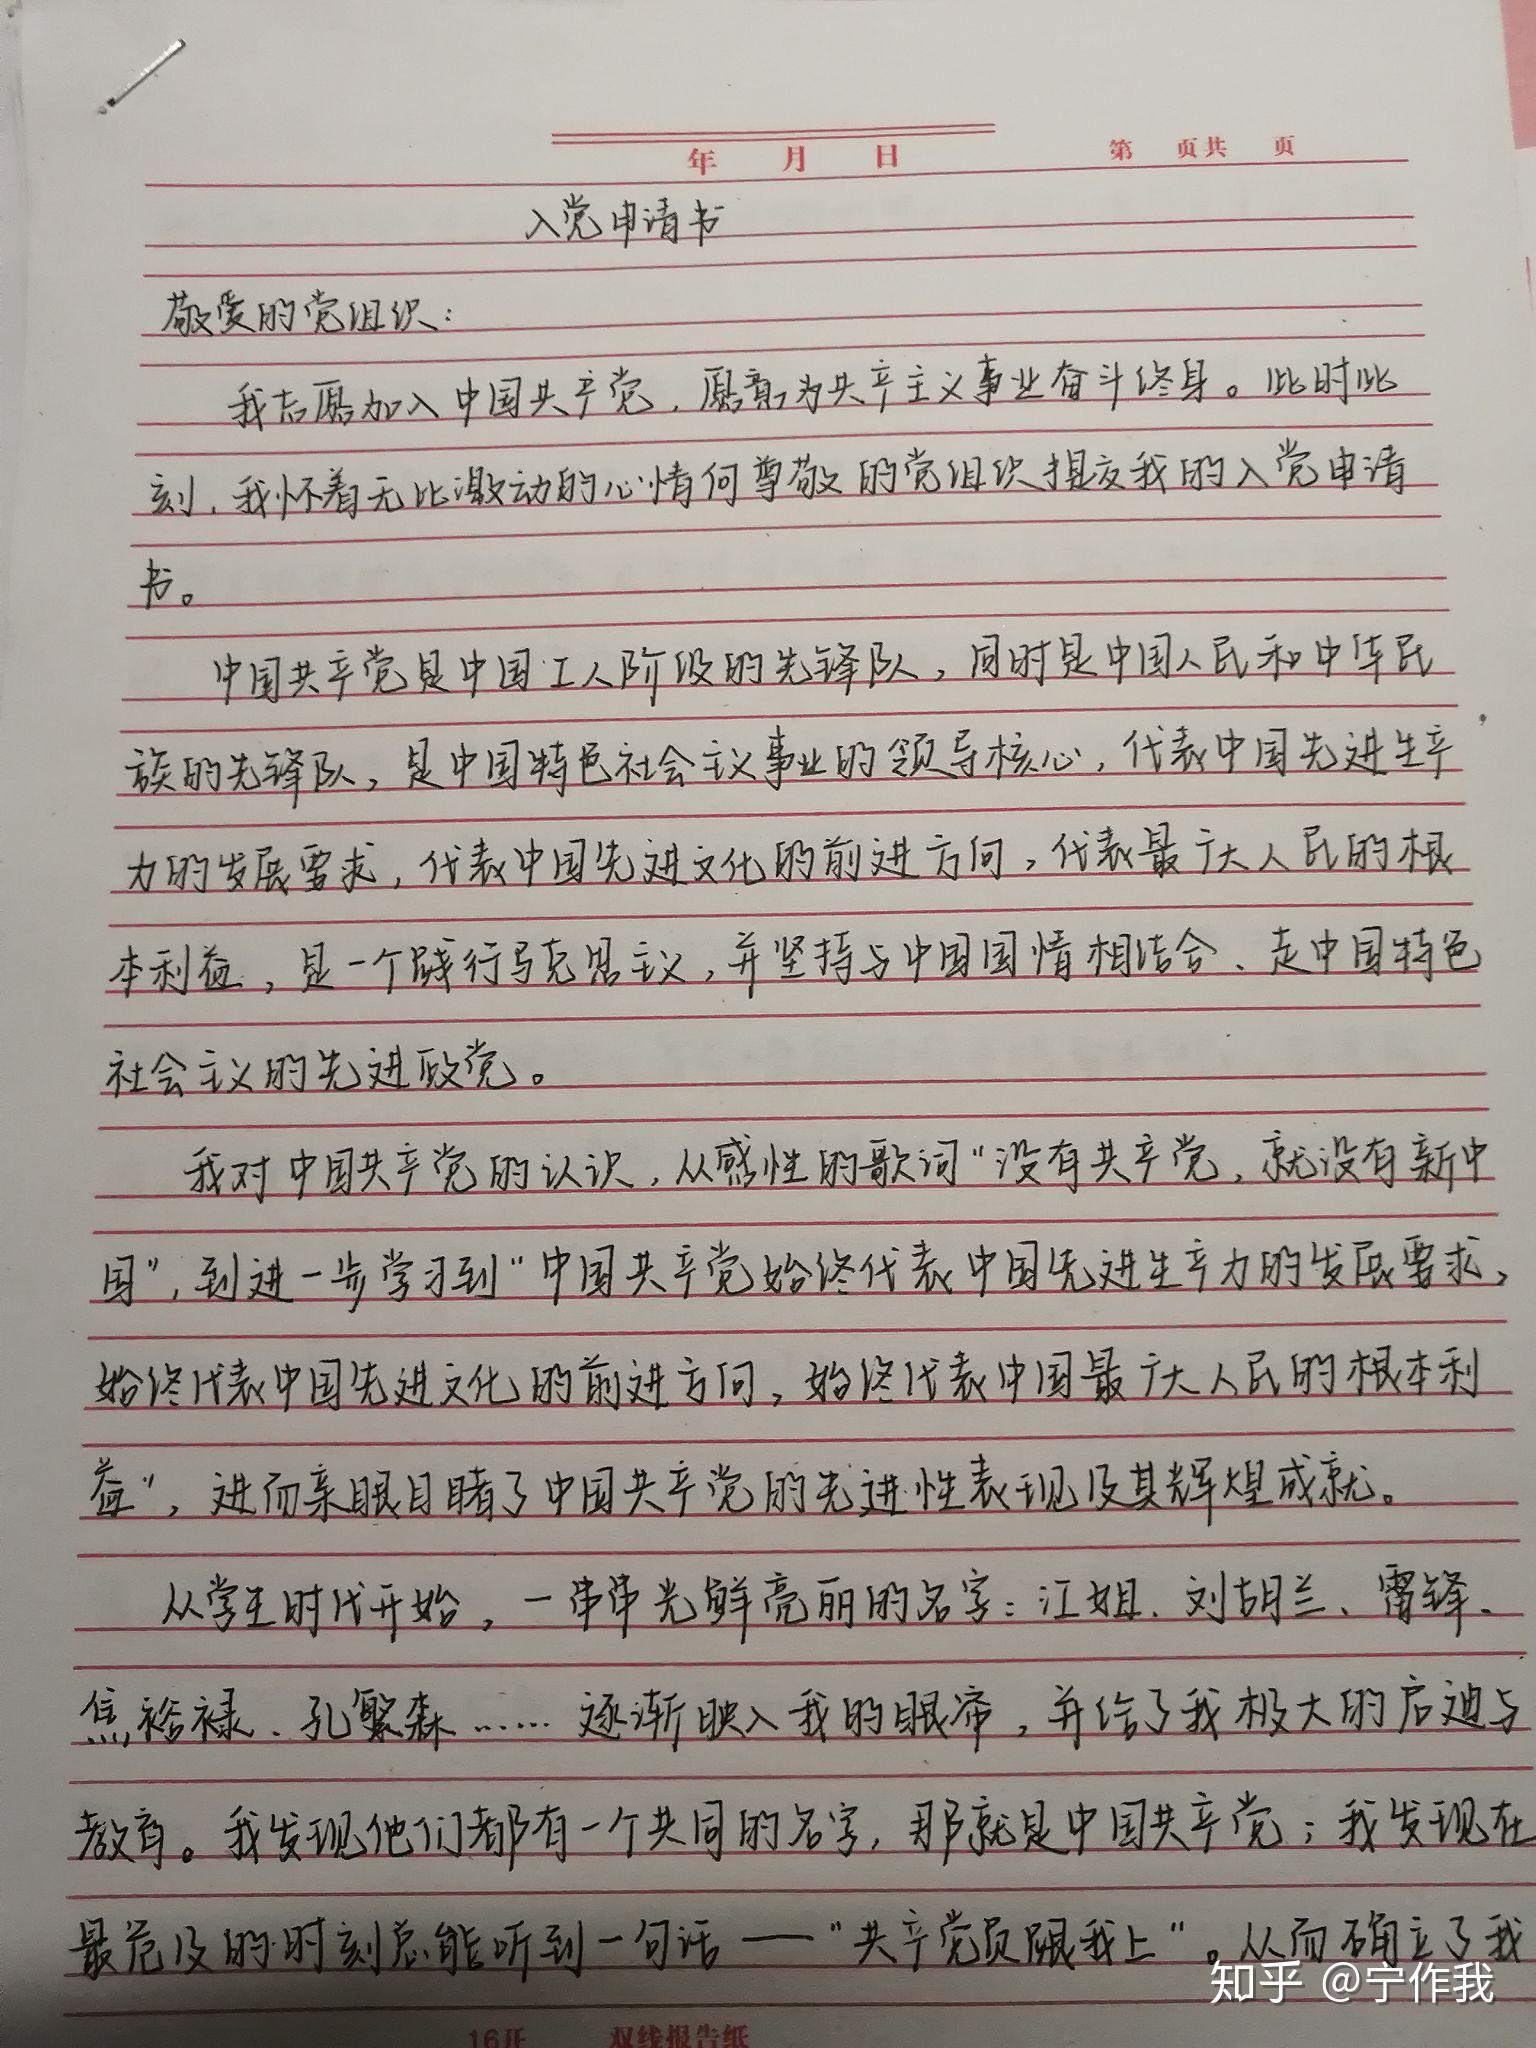 年 月 日 第 页共 页
入党申请书
敬爱的党组织：
我志愿加入中国共产党，愿意为共产主义事业奋斗终身。此时此
刻，我怀着无比激动的心情向尊敬的党组织提交我的入党申请
书。
中国共产党是中国工人阶级的先锋队，同时是中国人民和中华民
族的先锋队，是中国特色社会主义事业的领导核心，代表中国先进生产
力的发展要求，代表中国先进文化的前进方向，代表最广大人民的根
本利益，是一个践行马克思主义，并坚持与中国国情相结合、走中国特色
社会主义的先进政党。
我对中国共产党的认识，从感性的歌词“没有共产党，就没有新中
国”，到进一步学习到“中国共产党始终代表中国先进生产力的发展要求，
始终代表中国先进文化的前进方向，始终代表中国最广大人民的根本利
益”，进而亲眼目睹了中国共产党的先进性表现及其辉煌成就。
从学生时代开始，一串串光鲜亮丽的名字：江姐、刘胡兰、雷锋、
焦裕禄、孔繁森……逐渐映入我的眼帘，并给了我极大的启迪与
教育。我发现他们都有一个共同的名字，那就是中国共产党；我发现在
最危及的时刻总能听到一句话——“共产党员跟我上”。从而确立了我
知乎 @宁作我
16开 双线报告纸